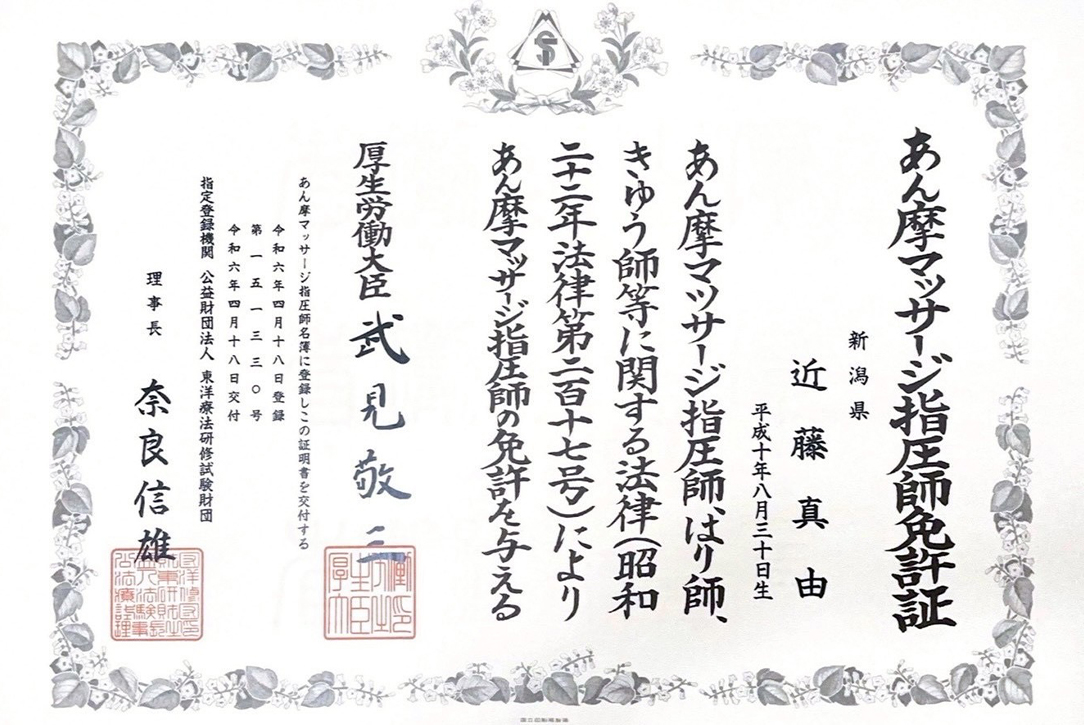 あん摩マッサージ指圧師免許証
新潟県
近藤真由
平成十年八月三十日生
あん摩マツサージ指圧師、はり師、
きゆう師等に関する法律(昭和
二十二年法律第二百十七号)により
あん摩マッサージ指圧師の免許を与える
厚生労働大臣 武見敬三
あん摩マッサージ指圧師名簿に登録しこの証明書を交付する
令和六年四月十八日登録
第一五一三三〇号
令和六年四月十八日交付
指定登録機関 公益財団法人 東洋療法研修試験財団
理事長 奈良信雄